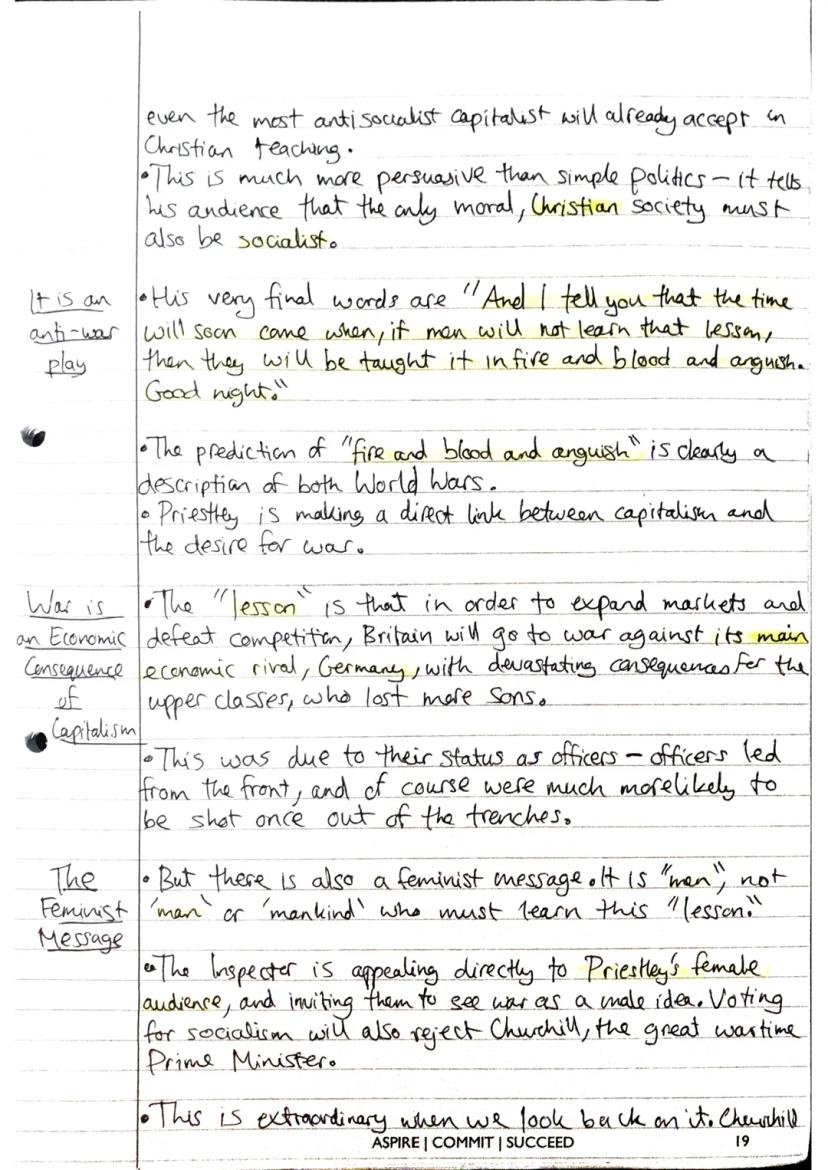 even the most antisocialist capitalist will already accept in
Christian teaching.
•This is much more persuasive than simple politics – it tells
his audience that the only moral, Christian society must
also be socialist.
It is an
anti-war
play
•His very final words are "And I tell you that the time
will soon come when, if men will not learn that lesson,
then they will be taught it in fire and blood and anguish.
Good night."
•The prediction of "fire and blood and anguish" is clearly a
description of both World Wars.
• Priestley is making a direct link between capitalism and
the desire for war.
War is
an Economic
Consequence
of
Capitalism
•The "lesson" is that in order to expand markets and
defeat competition, Britain will go to war against its main
economic rival, Germany, with devastating consequences for the
upper classes, who lost more sons.
•This was due to their status as officers – officers led
from the front, and of course were much more likely to
be shot once out of the trenches.
The
Feminist
Message
• But there is also a feminist message. It is "men", not
'man' or 'mankind' who must learn this "lesson."
•The Inspector is appealing directly to Priestley's female
audience, and inviting them to see war as a male idea. Voting
for socialism will also reject Churchill, the great wartime
Prime Minister.
•This is extraordinary when we look back on it. Churchill
ASPIRE | COMMIT | SUCCEED 19